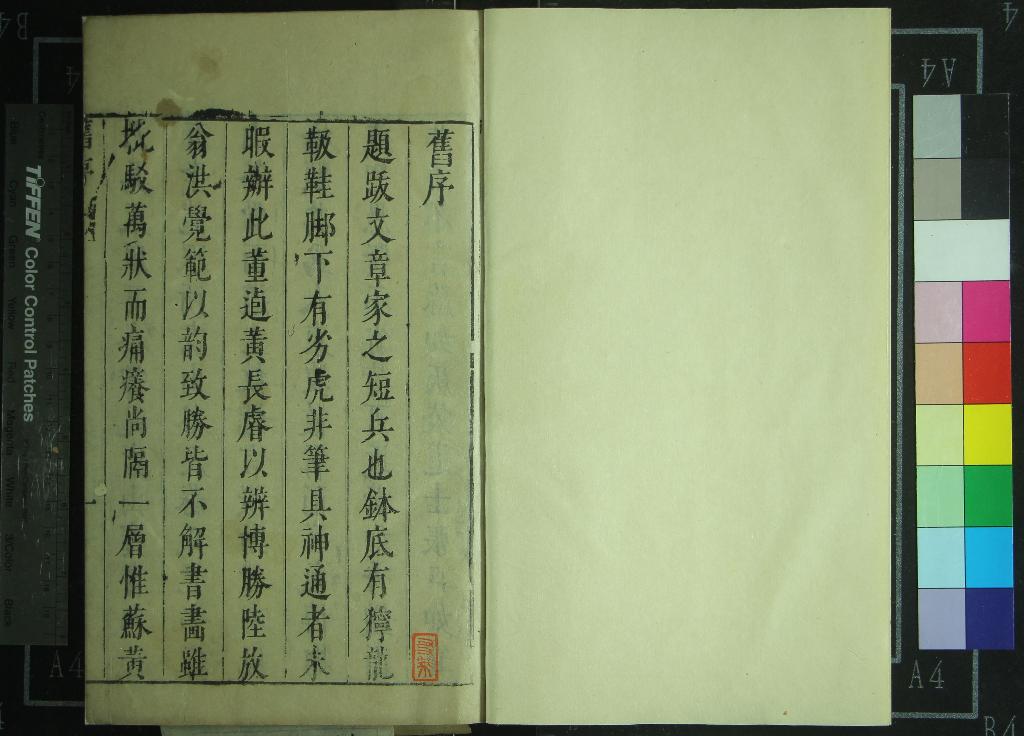 舊序
題跋文章家之短兵也鉢底有獰龍
靸鞋脚下有劣虎非筆具神通者未
暇辦此董逌黃長睿以辨博勝陸放
翁洪覺範以韵致勝皆不解書畵雖
批駁萬狀而痛癢尚隔一層惟蘇黃
舊序
一
TIFFEN Color Control Patches
A4
A4
A4
A4
B4
B4